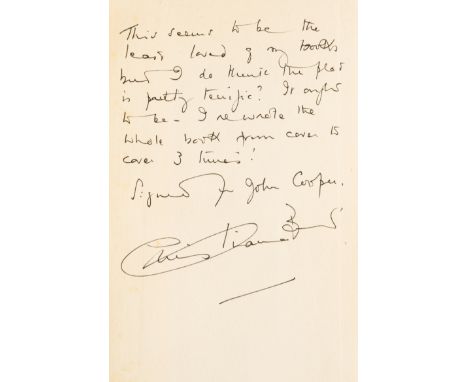 This seems to be the
least loved of my books
but I do think the plot
is pretty terrific? It ought
to be - I re wrote the
whole book from cover to
cover 3 times!
Signed for John Cooper.
Christianna Brand